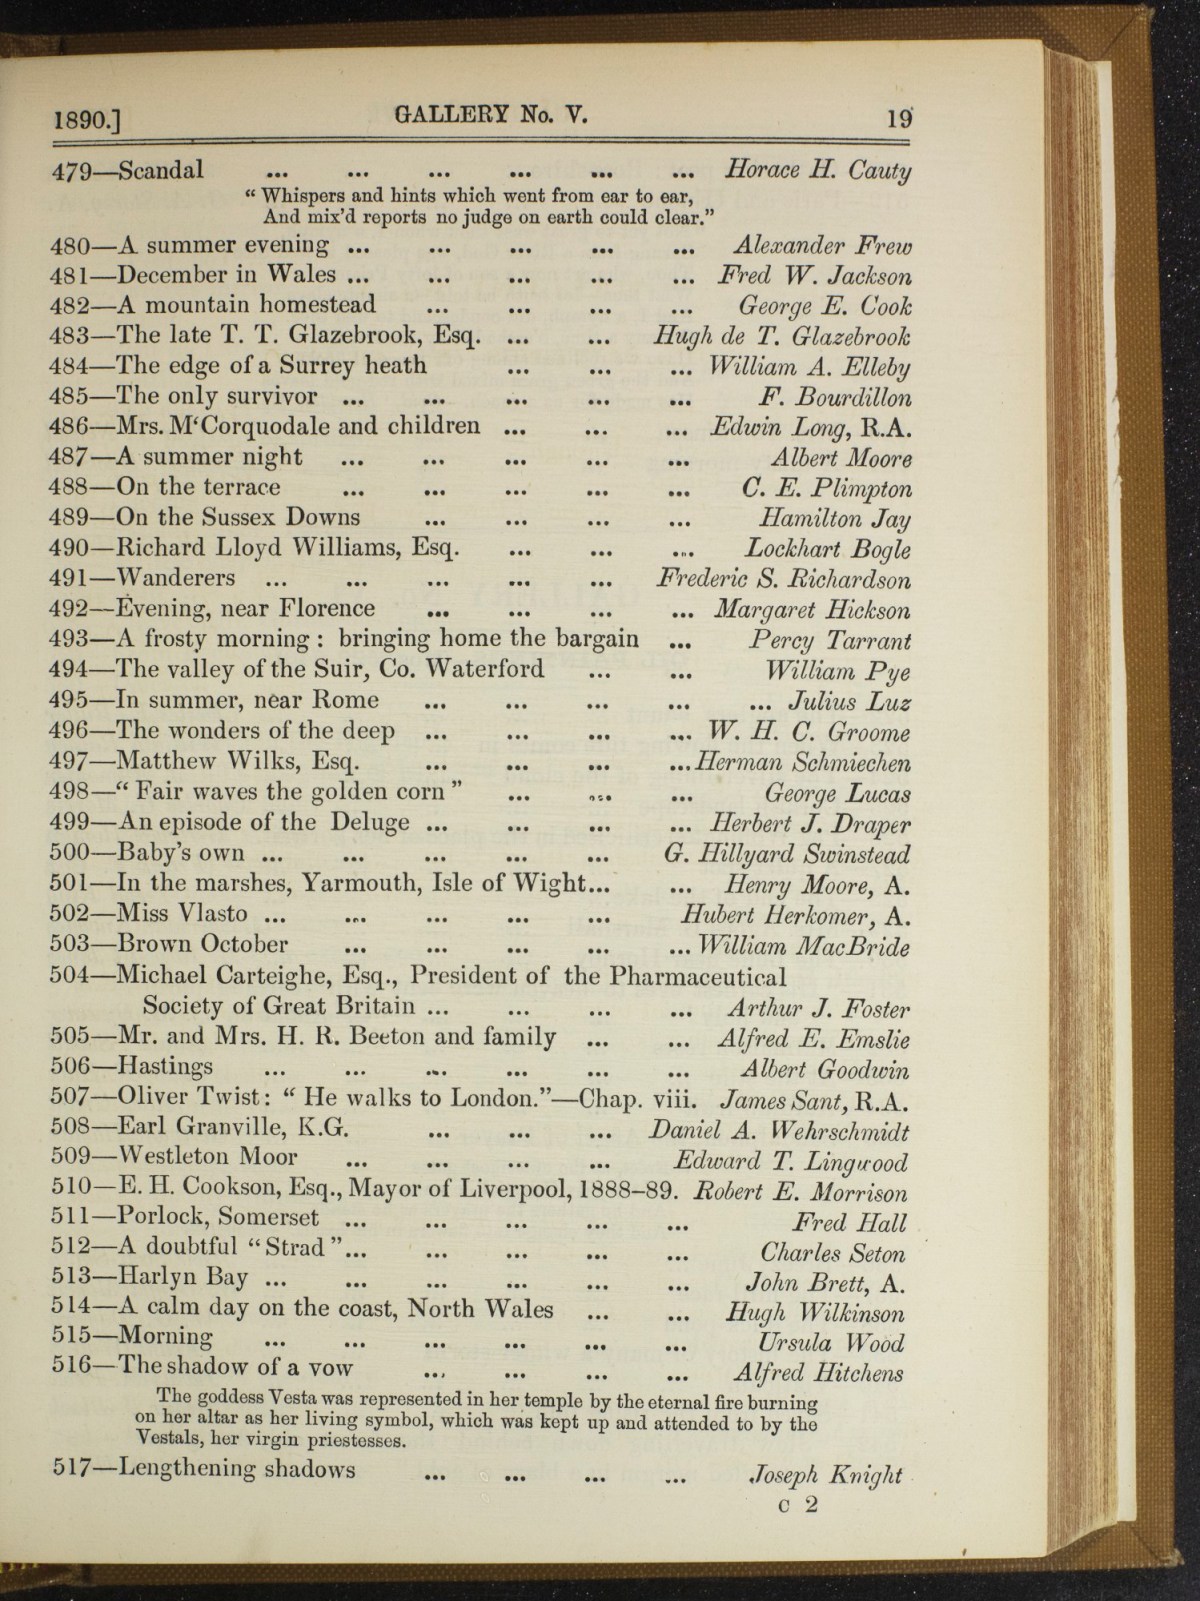 1890.] GALLERY No. V. 19
479—Scandal ... ... ... ... ... ... Horace H. Cauty
“ Whispers and hints which went from ear to ear,
And mix’d reports no judge on earth could clear.”
480—A summer evening ... ... ... ... ... Alexander Frew
481—December in Wales ... ... ... ... ... Fred W. Jackson
482—A mountain homestead ... ... ... ... George E. Cook
483—The late T. T. Glazebrook, Esq. ... ... Hugh de T. Glazebrook
484—The edge of a Surrey heath ... ... ... William A. Elleby
485—The only survivor ... ... ... ... ... F. Bourdillon
486—Mrs. M‘Corquodale and children ... ... ... Edwin Long, R.A.
487—A summer night ... ... ... ... ... Albert Moore
488—On the terrace ... ... ... ... ... C. E. Plimpton
489—On the Sussex Downs ... ... ... ... Hamilton Jay
490—Richard Lloyd Williams, Esq. ... ... ... Lockhart Bogle
491—Wanderers ... ... ... ... ... Frederic S. Richardson
492—Evening, near Florence ... ... ... ... Margaret Hickson
493—A frosty morning : bringing home the bargain ... Percy Tarrant
494—The valley of the Suir, Co. Waterford ... ... William Pye
495—In summer, near Rome ... ... ... ... ... Julius Luz
496—The wonders of the deep ... ... ... ... W. H. C. Groome
497—Matthew Wilks, Esq. ... ... ... ... Herman Schmiechen
498—“ Fair waves the golden corn ” ... ... ... George Lucas
499—An episode of the Deluge ... ... ... ... Herbert J. Draper
500—Baby’s own ... ... ... ... ... G. Hillyard Swinstead
501—In the marshes, Yarmouth, Isle of Wight... ... Henry Moore, A.
502—Miss Vlasto ... ... ... ... ... Hubert Herkomer, A.
503—Brown October ... ... ... ... ... William MacBride
504—Michael Carteighe, Esq., President of the Pharmaceutical
Society of Great Britain ... ... ... ... Arthur J. Foster
505—Mr. and Mrs. H. R. Beeton and family ... ... Alfred E. Emslie
506—Hastings ... ... ... ... ... ... Albert Goodwin
507—Oliver Twist: “ He walks to London.”—Chap. viii. James Sant, R.A.
508—Earl Granville, K.G. ... ... ... Daniel A. Wehrschmidt
509—Westleton Moor ... ... ... ... Edward T. Lingwood
510—E. H. Cookson, Esq., Mayor of Liverpool, 1888–89. Robert E. Morrison
511—Porlock, Somerset ... ... ... ... ... Fred Hall
512—A doubtful “Strad”... ... ... ... ... Charles Seton
513—Harlyn Bay ... ... ... ... ... ... John Brett, A.
514—A calm day on the coast, North Wales ... ... Hugh Wilkinson
515—Morning ... ... ... ... ... ... Ursula Wood
516—The shadow of a vow ... ... ... ... Alfred Hitchens
The goddess Vesta was represented in her temple by the eternal fire burning
on her altar as her living symbol, which was kept up and attended to by the
Vestals, her virgin priestesses.
517—Lengthening shadows ... ... ... ... Joseph Knight
C 2